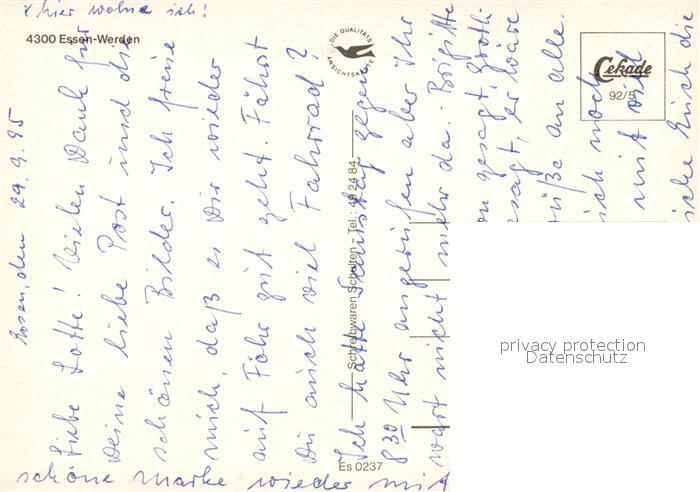 x hier wohne ich!
4300 Essen-Werden
DIE QUALITÄTS
ANSICHTSKARTE
Cekade
92/5
Essen, den 29.9.95
Liebe Lotte! Vielen Dank für
Deine liebe Post und die
schönen Bilder. Ich freue
mich, daß es Dir wieder
auf Föhr gut geht. Fährst
Du auch viel Fahrrad?
Ich hatte Samstag gegen
8 30 Uhr angerufen aber Ihr
wart nicht mehr da. Brigitte
gesagt
esagt, er wäre
rüße an alle.
ich noch
mit viel
Euch die
schöne Marke wieder mit
Schreibwaren Schulten - Tel.: 49 24 84
Es 0237
privacy protection
Datenschutz